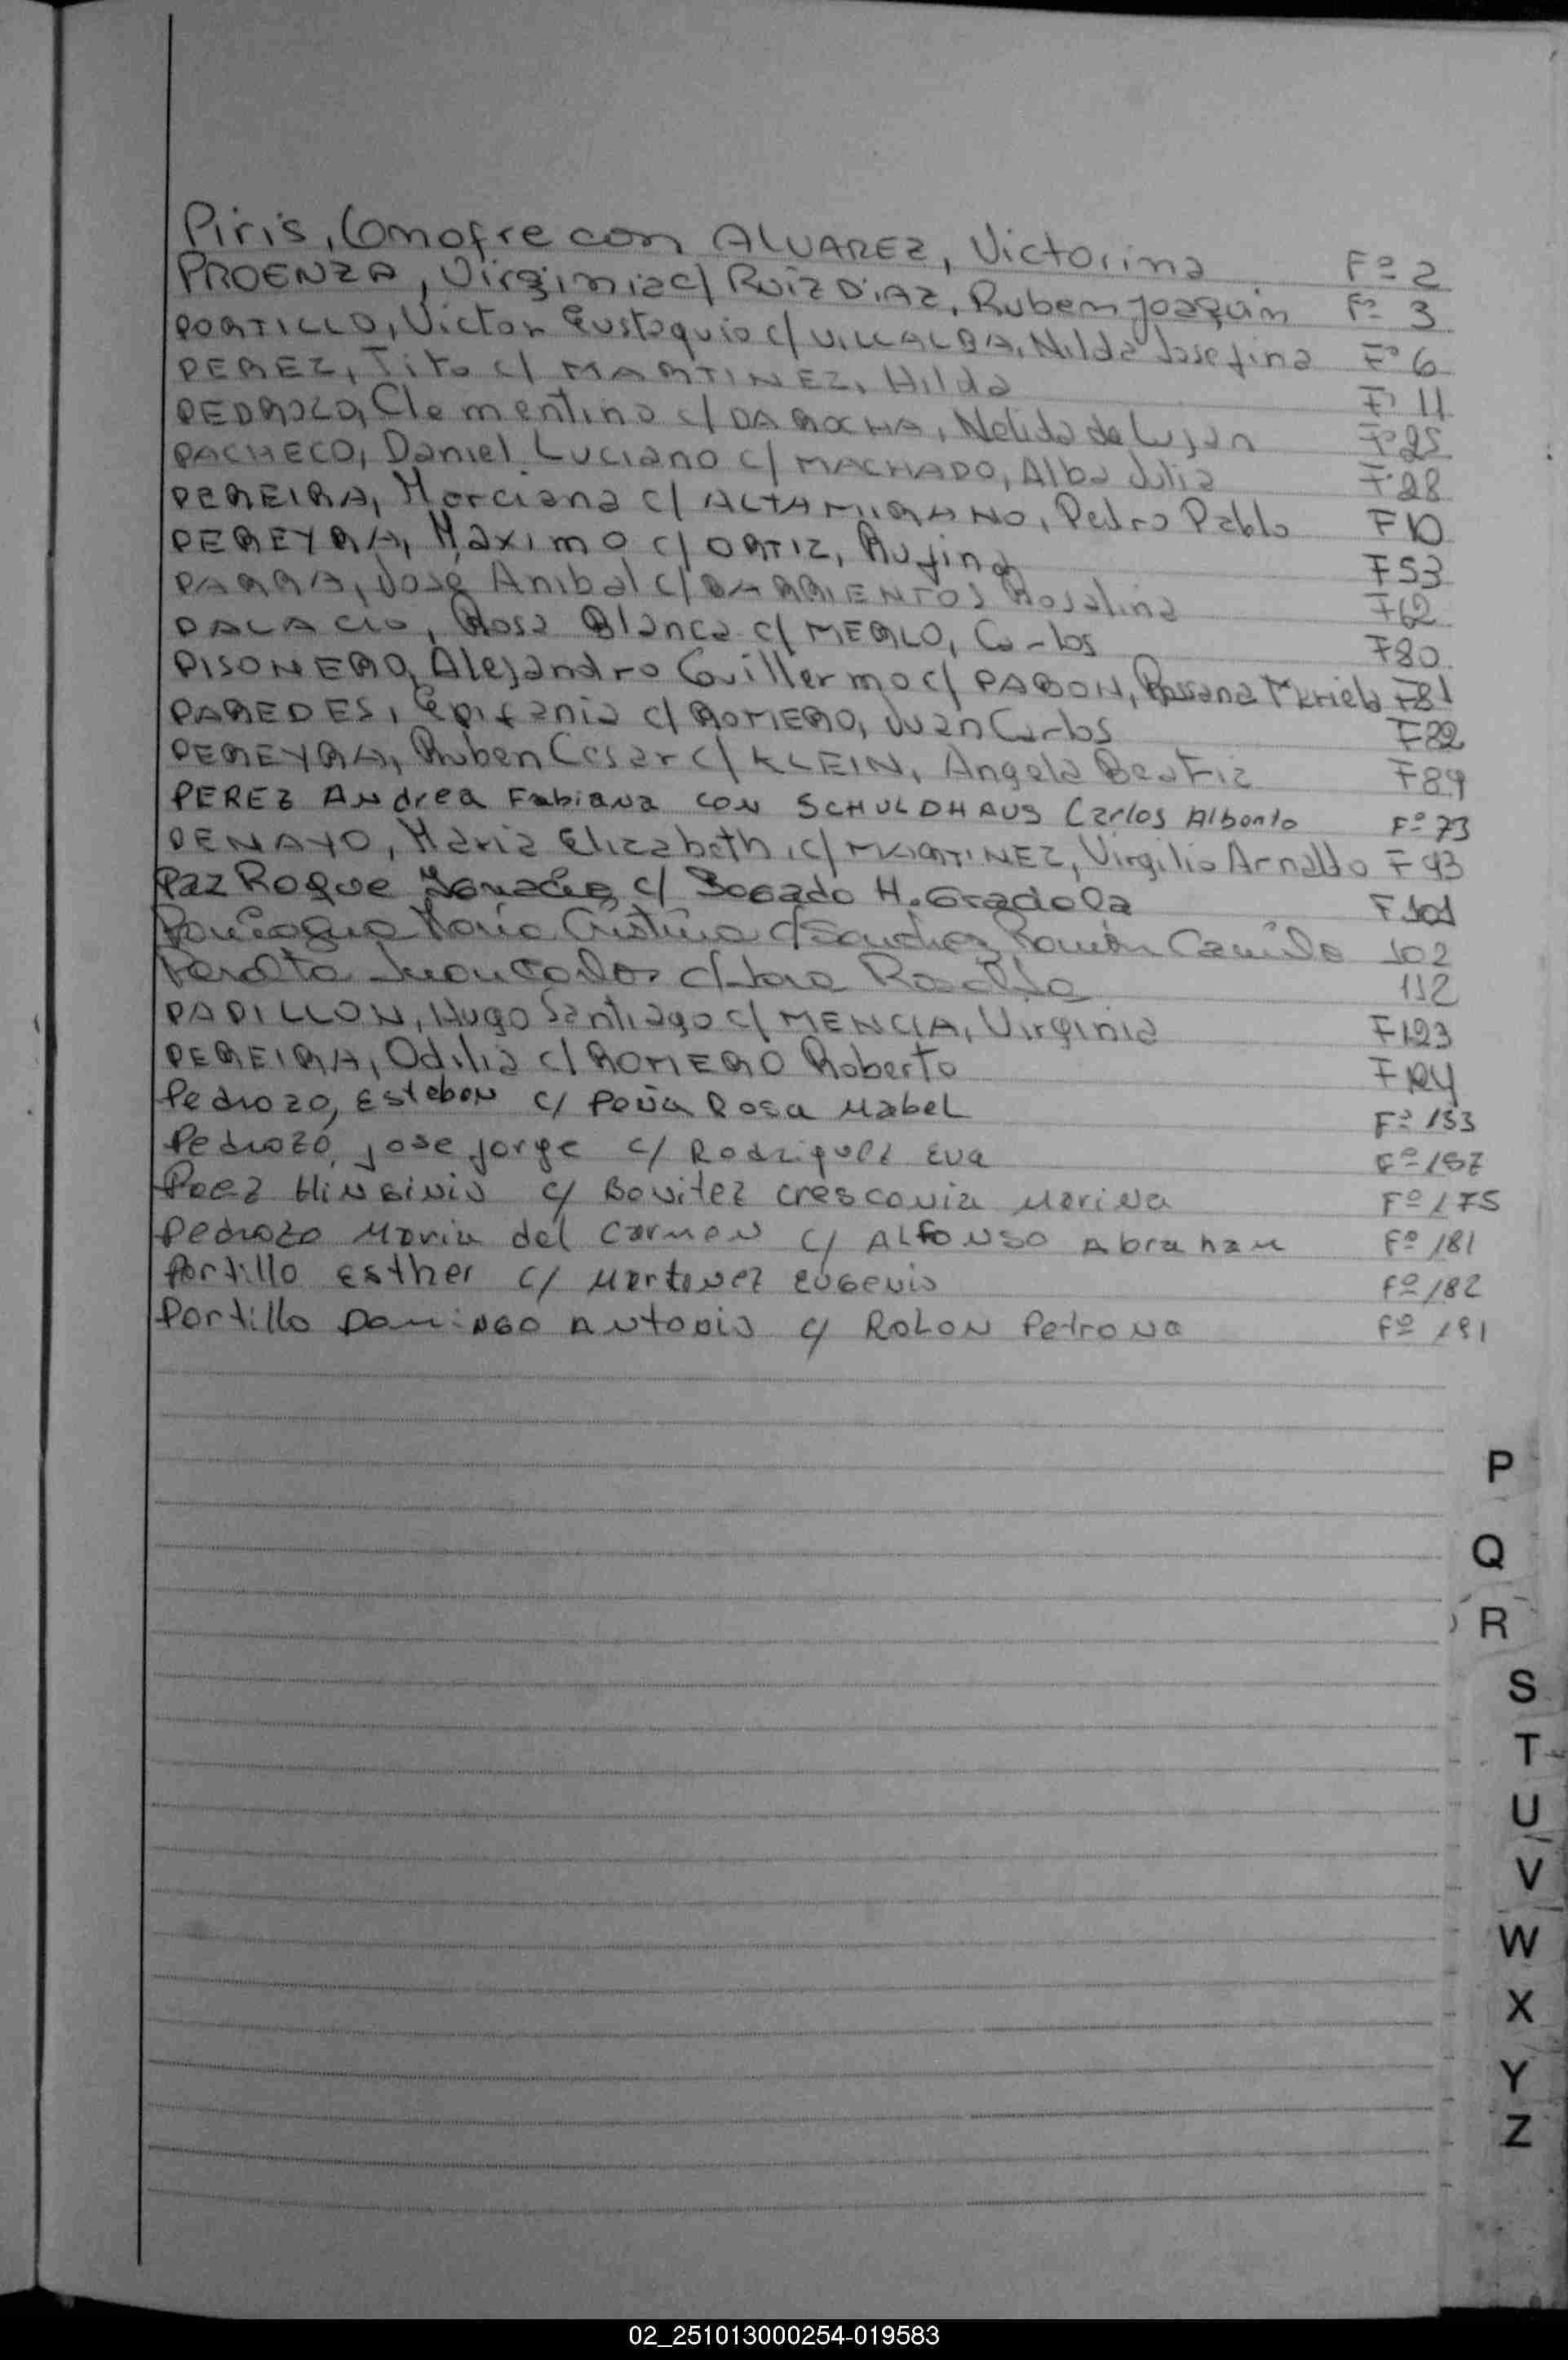 Piris, Conofre con ALVAREZ, Victorina Fº 2
PROENZA, Virginia c/ RUIZ DIAZ, Ruben Joaquin Fº 3
PORTILLO, Victor Eustaquio c/ VILLALBA, Nilda Josefina Fº 6
PEREZ, Tito c/ MARTINEZ, Hilda Fº 11
PEDROZO, Clementino c/ DA ROCHA, Nelida de Lujan Fº 25
PACHECO, Daniel Luciano c/ MACHADO, Alba Julia Fº 28
PEREIRA, Marciana c/ ALTAMIRANO, Pedro Pablo F
PEREYRA, Máximo c/ ORTIZ, Rufina F 53
PARRA, José Anibal c/ BARRIENTOS Rosalina F 62
PALACIO, Rosa Blanca c/ MERLO, Carlos F 80
PISONERO, Alejandro Guillermo c/ PABON, Rossana Mariela F 81
PAREDES, Epifania c/ ROMERO, Juan Carlos F 82
PEREYRA, Ruben Cesar c/ KLEIN, Angela Beatriz F 89
PEREZ Andrea Fabiana con SCHULDHAUS Carlos Alberto Fº 73
PENAYO, Maria Elizabeth, c/ MARTINEZ, Virgilio Arnaldo F 93
Paz Roque c/ Bogado H. Gradela F 101
Maria Cristina c/ Sanchez Ramón Camilo 102
Peralta Juan Carlos c/ 112
PADILLON, Hugo Santiago c/ MENCIA, Virginia F 123
PEREIRA, Odilia c/ ROMERO Roberto F 124
Pedrozo, Esteban c/ Peña Rosa Mabel Fº 153
Pedrozo, Jose Jorge c/ Rodriguez Eva Fº 157
Paez Higinio c/ Benitez Crescencia Marina Fº 175
Pedrozo Maria del Carmen c/ ALFONSO Abraham Fº 181
Portillo Esther c/ Martinez Eugenio Fº 182
Portillo Domingo Antonio c/ ROLON Petrona Fº 191
P
Q
R
S
T
U
V
W
X
Y
Z
02_251013000254-019583